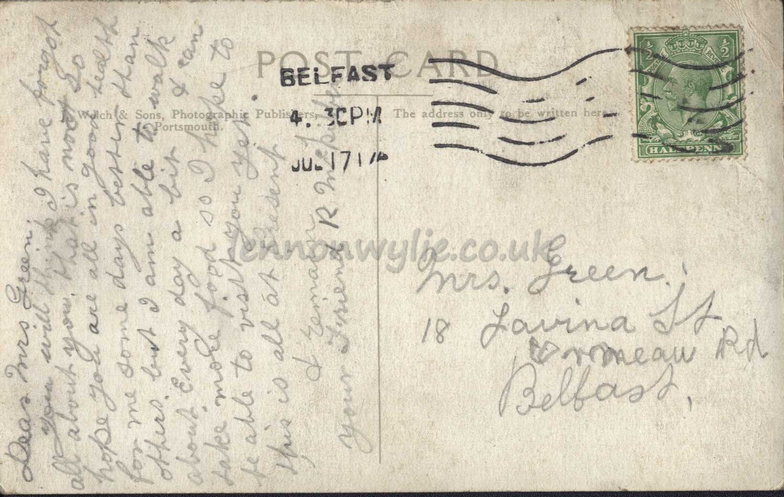 POST CARD
BELFAST
4. 30PM
JUL 17 17
Welch & Sons, Photographic Publishers,
Portsmouth.
The address only to be written here.
HALFPENNY
Dear Mrs Green.
you will think I have forgot
all about you. that is not so
hope you are all in good health
for me some days better than
others. but I am able to walk
about every day a bit & can
take more food so I hope to
be able to visit you yet.
this is all at Present
I remain
your Friend R
Mrs. Green.
18 Lavina St
Ormeau Rd
Belfast,
lennonwylie.co.uk